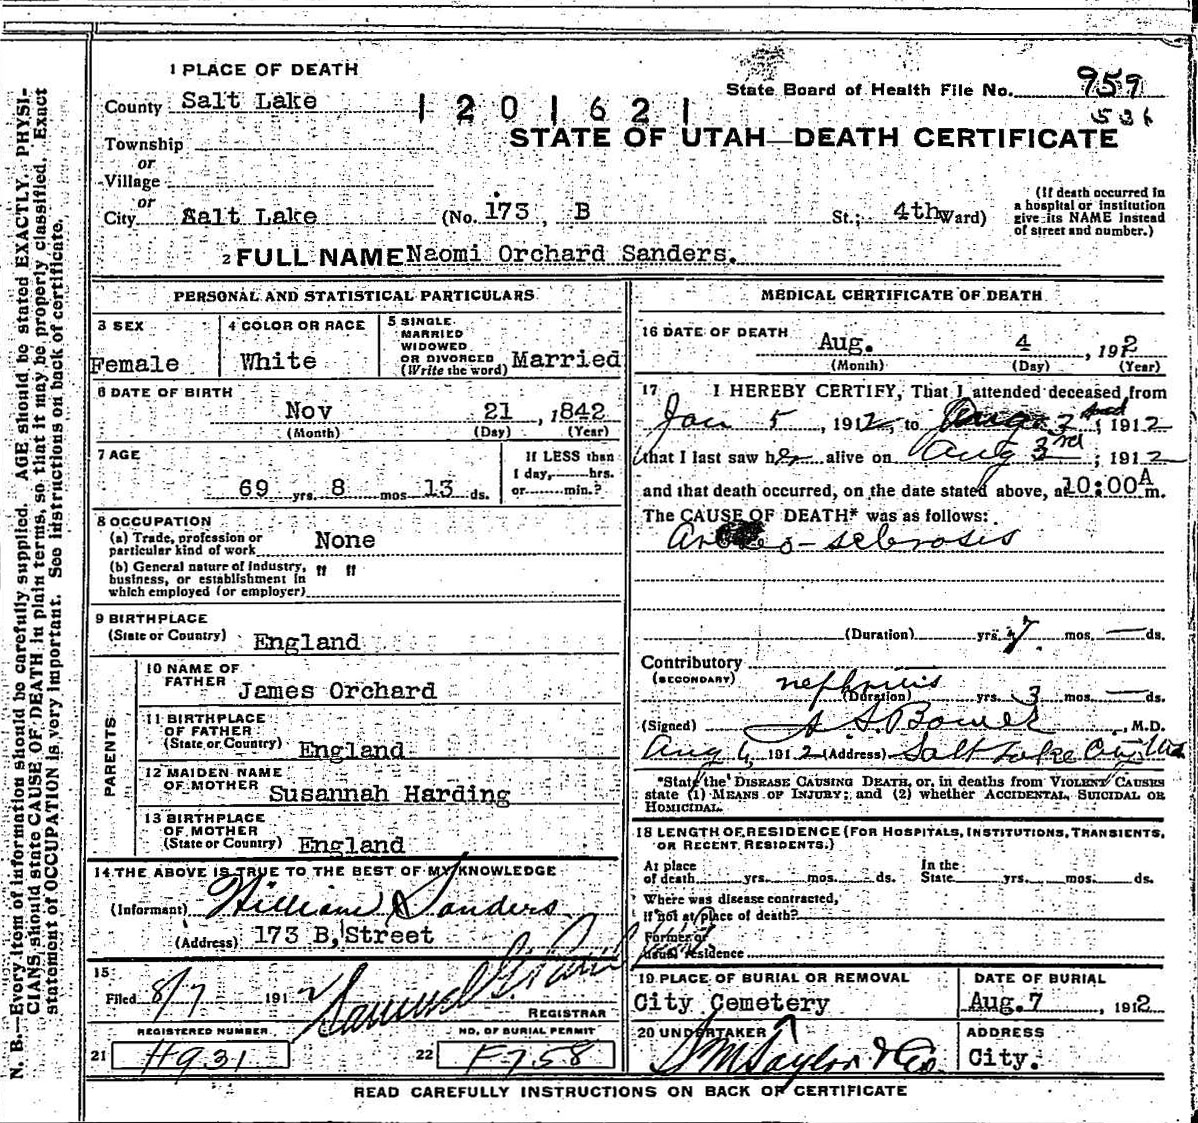 1 PLACE OF DEATH
County Salt Lake
1201621
State Board of Health File No. 959
536
STATE OF UTAH—DEATH CERTIFICATE
Township
or
Village
or
City Salt Lake (No. 173, B St.; 4th Ward)
(If death occurred in a hospital or institution give its NAME instead of street and number.)
2 FULL NAME Naomi Orchard Sanders.
PERSONAL AND STATISTICAL PARTICULARS
3 SEX
Female
4 COLOR OR RACE
White
5 SINGLE
MARRIED
WIDOWED
OR DIVORCED
(Write the word) Married
6 DATE OF BIRTH
Nov 21, 1842
(Month) (Day) (Year)
7 AGE
69 yrs. 8 mos. 13 ds.
If LESS than
1 day, hrs.
or min.?
8 OCCUPATION
(a) Trade, profession or
particular kind of work None
(b) General nature of industry,
business, or establishment in
which employed (or employer) " "
9 BIRTHPLACE
(State or Country) England
PARENTS
10 NAME OF
FATHER James Orchard
11 BIRTHPLACE
OF FATHER
(State or Country) England
12 MAIDEN NAME
OF MOTHER Susannah Harding
13 BIRTHPLACE
OF MOTHER
(State or Country) England
14 THE ABOVE IS TRUE TO THE BEST OF MY KNOWLEDGE
(Informant) William Sanders
(Address) 173 B, Street
15
Filed 8/7 1912 Samuel G. Paul
REGISTRAR
REGISTERED NUMBER
21 H931
NO. OF BURIAL PERMIT
22 F758
MEDICAL CERTIFICATE OF DEATH
16 DATE OF DEATH
Aug. 4, 1912
(Month) (Day) (Year)
17 I HEREBY CERTIFY, That I attended deceased from
Jan 5, 1912, to Aug. 3rd, 1912
that I last saw her alive on Aug 3rd, 1912
and that death occurred, on the date stated above, at 10:00 A m.
The CAUSE OF DEATH* was as follows:
Arterio-sclerosis
(Duration) yrs. 7 mos. — ds.
Contributory
(SECONDARY) nephritis
(Duration) yrs. 3 mos. — ds.
(Signed) S. S. Bower, M.D.
Aug 6, 1912 (Address) Salt Lake City Utah
*State the DISEASE CAUSING DEATH, or, in deaths from VIOLENT CAUSES
state (1) MEANS OF INJURY; and (2) whether ACCIDENTAL, SUICIDAL OR
HOMICIDAL.
18 LENGTH OF RESIDENCE (FOR HOSPITALS, INSTITUTIONS, TRANSIENTS,
OR RECENT RESIDENTS.)
At place
of death yrs. mos. ds.
In the
State yrs. mos. ds.
Where was disease contracted,
If not at place of death?
Former or
usual residence
19 PLACE OF BURIAL OR REMOVAL
City Cemetery
DATE OF BURIAL
Aug. 7, 1912
20 UNDERTAKER
S M Taylor & Co.
ADDRESS
City.
READ CAREFULLY INSTRUCTIONS ON BACK OF CERTIFICATE
N. B.—Every item of information should be carefully supplied. AGE should be stated EXACTLY. PHYSI-
CIANS should state CAUSE OF DEATH in plain terms, so that it may be properly classified. Exact
statement of OCCUPATION is very important. See instructions on back of certificate.